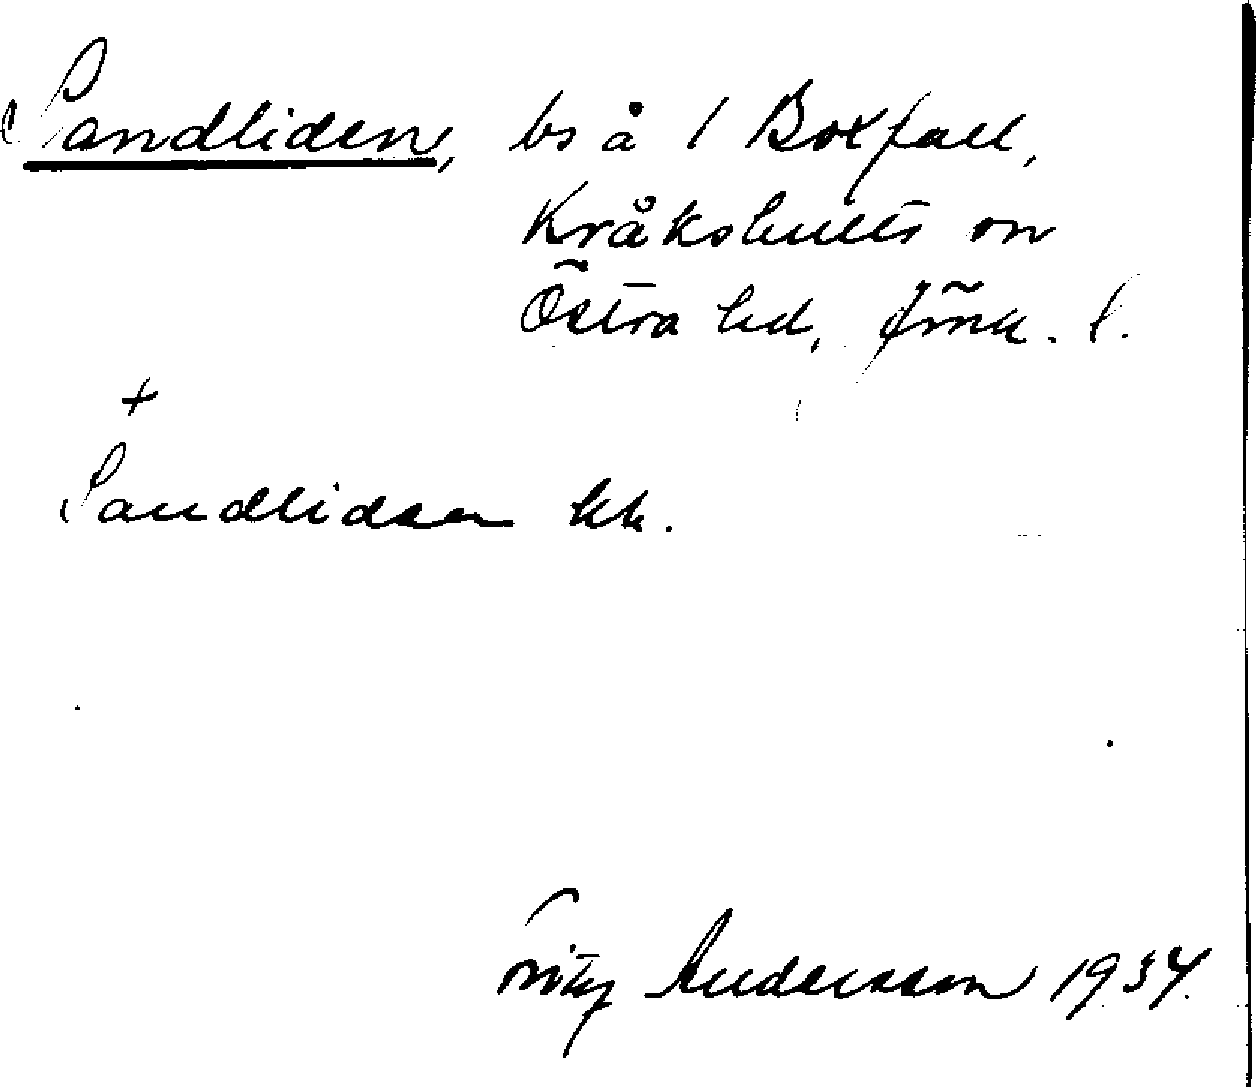 Sandliden, bs å 1 Boxfall,
Kråkshults sn
Östra hd, Jönk. l.
+
Sandlidsen kk.
Fritz Andersson 1934.